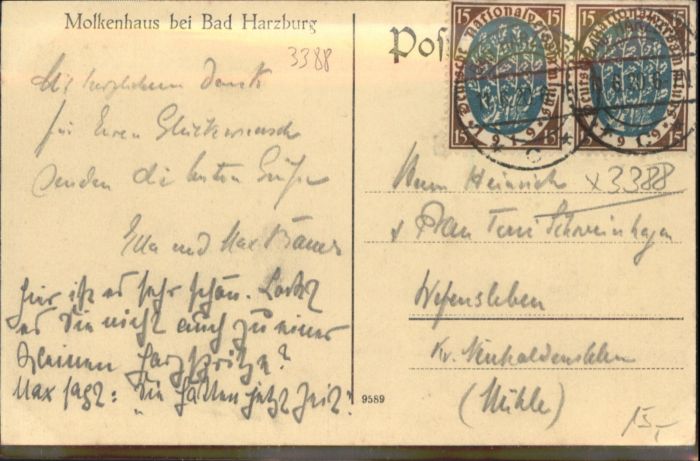 Molkenhaus bei Bad Harzburg
3388
Mit herzlichem Dank
für Euren Glückwunsch
senden die besten Grüße
Ella und Max Bauer
Hier ist es sehr schön. Lockt
es Sie nicht auch zu einer
kleinen Harzspritze?
Max sagt: "Sie hätten jetzt Zeit."
9589
Pos
15 Deutsche Nationalversammlung 1919 15
15 Deutsche Nationalversammlung 1919 15
Herrn Heinrich
x3388
u Frau Toni Schweinhagen
Wefensleben
Kr. Neuhaldensleben
(Mühle)
15,-